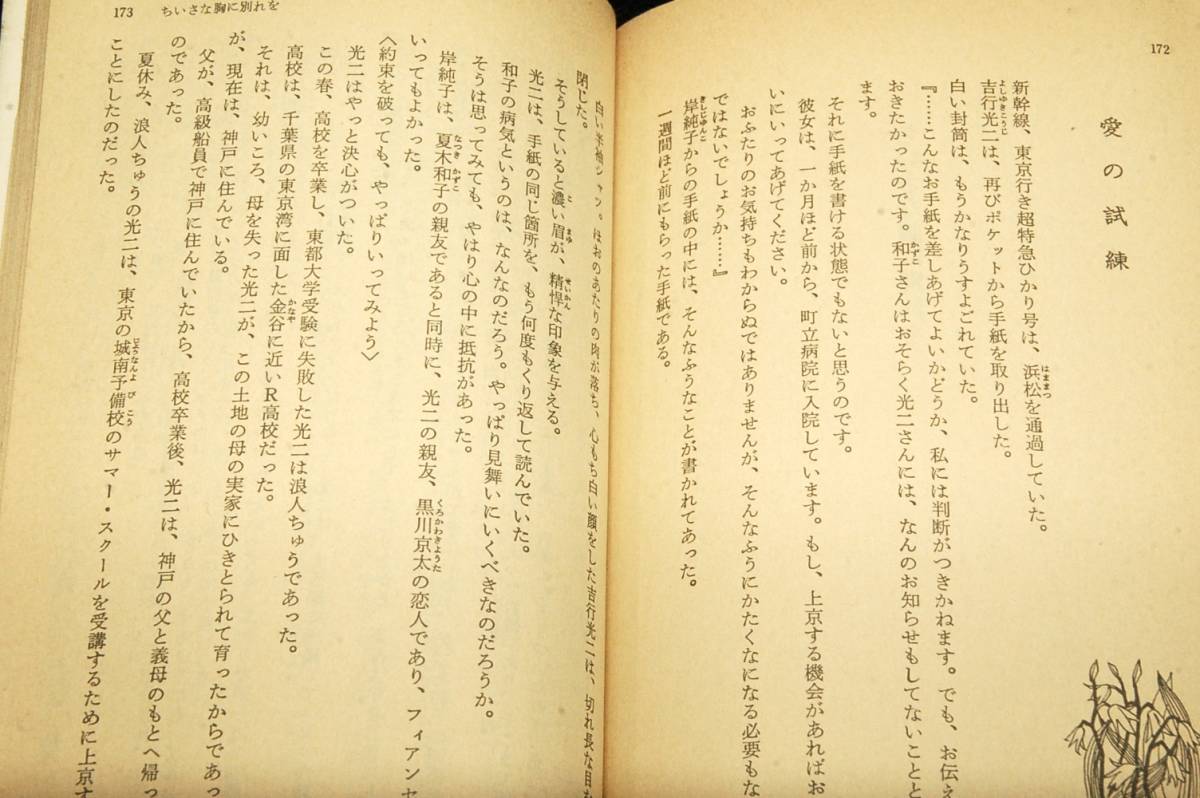 172
愛の試練
新幹線、東京行き超特急ひかり号は、浜松を通過していた。
吉行光二は、再びポケットから手紙を取り出した。
白い封筒は、もうかなりうすよごれていた。
『……こんなお手紙を差しあげてよいかどうか、私には判断がつきかねます。でも、お伝え
おきたかったのです。和子さんはおそらく光二さんには、なんのお知らせもしてないことと
ます。
それに手紙を書ける状態でもないと思うのです。
彼女は、一か月ほど前から、町立病院に入院しています。もし、上京する機会があればお
いにいってあげてください。
おふたりのお気持ちもわからぬではありませんが、そんなふうにかたくなになる必要もな
ではないでしょうか……』
岸純子からの手紙の中には、そんなふうなことが書かれてあった。
一週間ほど前にもらった手紙である。
173 ちいさな胸に別れを
白い半袖シャツ。ほおのあたりの肉が落ち、心もち白い顔をした吉行光二は、切れ長な目を
閉じた。
そうしていると濃い眉が、精悍な印象を与える。
光二は、手紙の同じ箇所を、もう何度もくり返して読んでいた。
和子の病気というのは、なんなのだろう。やっぱり見舞いにいくべきなのだろうか。
そうは思ってみても、やはり心の中に抵抗があった。
岸純子は、夏木和子の親友であると同時に、光二の親友、黒川京太の恋人であり、フィアンセ
いってもよかった。
〈約束を破っても、やっぱりいってみよう〉
光二はやっと決心がついた。
この春、高校を卒業し、東都大学受験に失敗した光二は浪人ちゅうであった。
高校は、千葉県の東京湾に面した金谷に近いR高校だった。
それは、幼いころ、母を失った光二が、この土地の母の実家にひきとられて育ったからであっ
が、現在は、神戸に住んでいる。
父が、高級船員で神戸に住んでいたから、高校卒業後、光二は、神戸の父と義母のもとへ帰っ
のであった。
夏休み、浪人ちゅうの光二は、東京の城南予備校のサマー・スクールを受講するために上京す
ことにしたのだった。